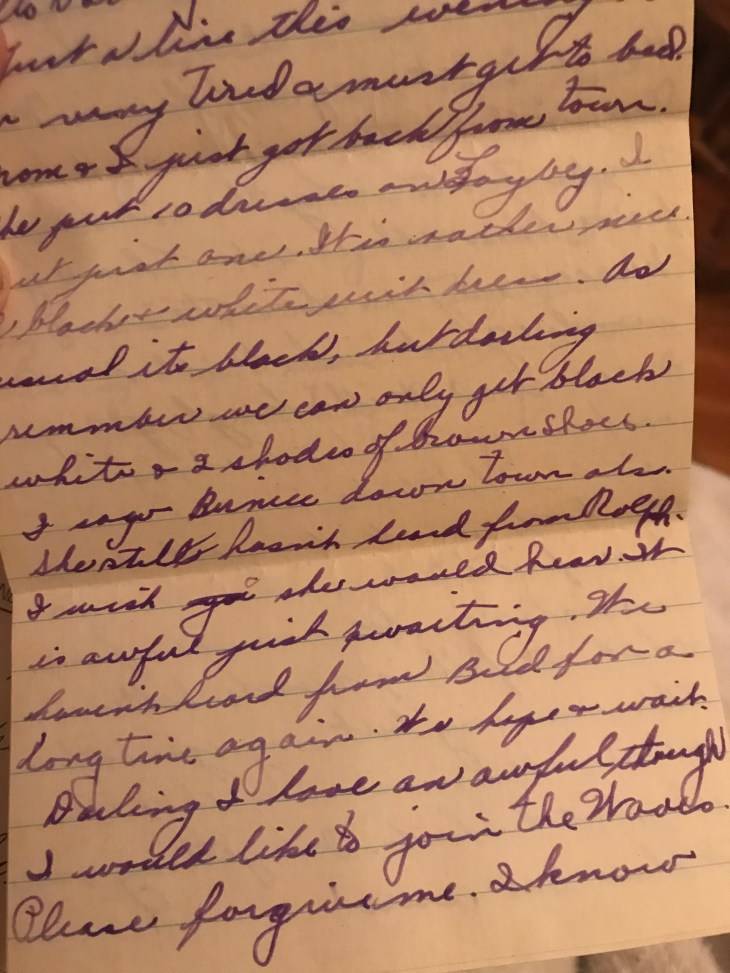 Just a line this evening
very tired & must get to bed.
mom & I just got back from town.
She put 10 dresses on Laybey. I
put just one. It is rather nice.
black & white suit dress. As
usual its black, but darling
remember we can only get black
white & 2 shades of brown shoes.
I saw Bunice down town als.
She still hasn't heard from Rolph.
I wish you she would hear. It
is awful just awaiting. We
haven't heard from Bud for a
long time again. We hope & wait.
Darling I have an awful though
I would like to join the Waves.
Please forgive me. I know